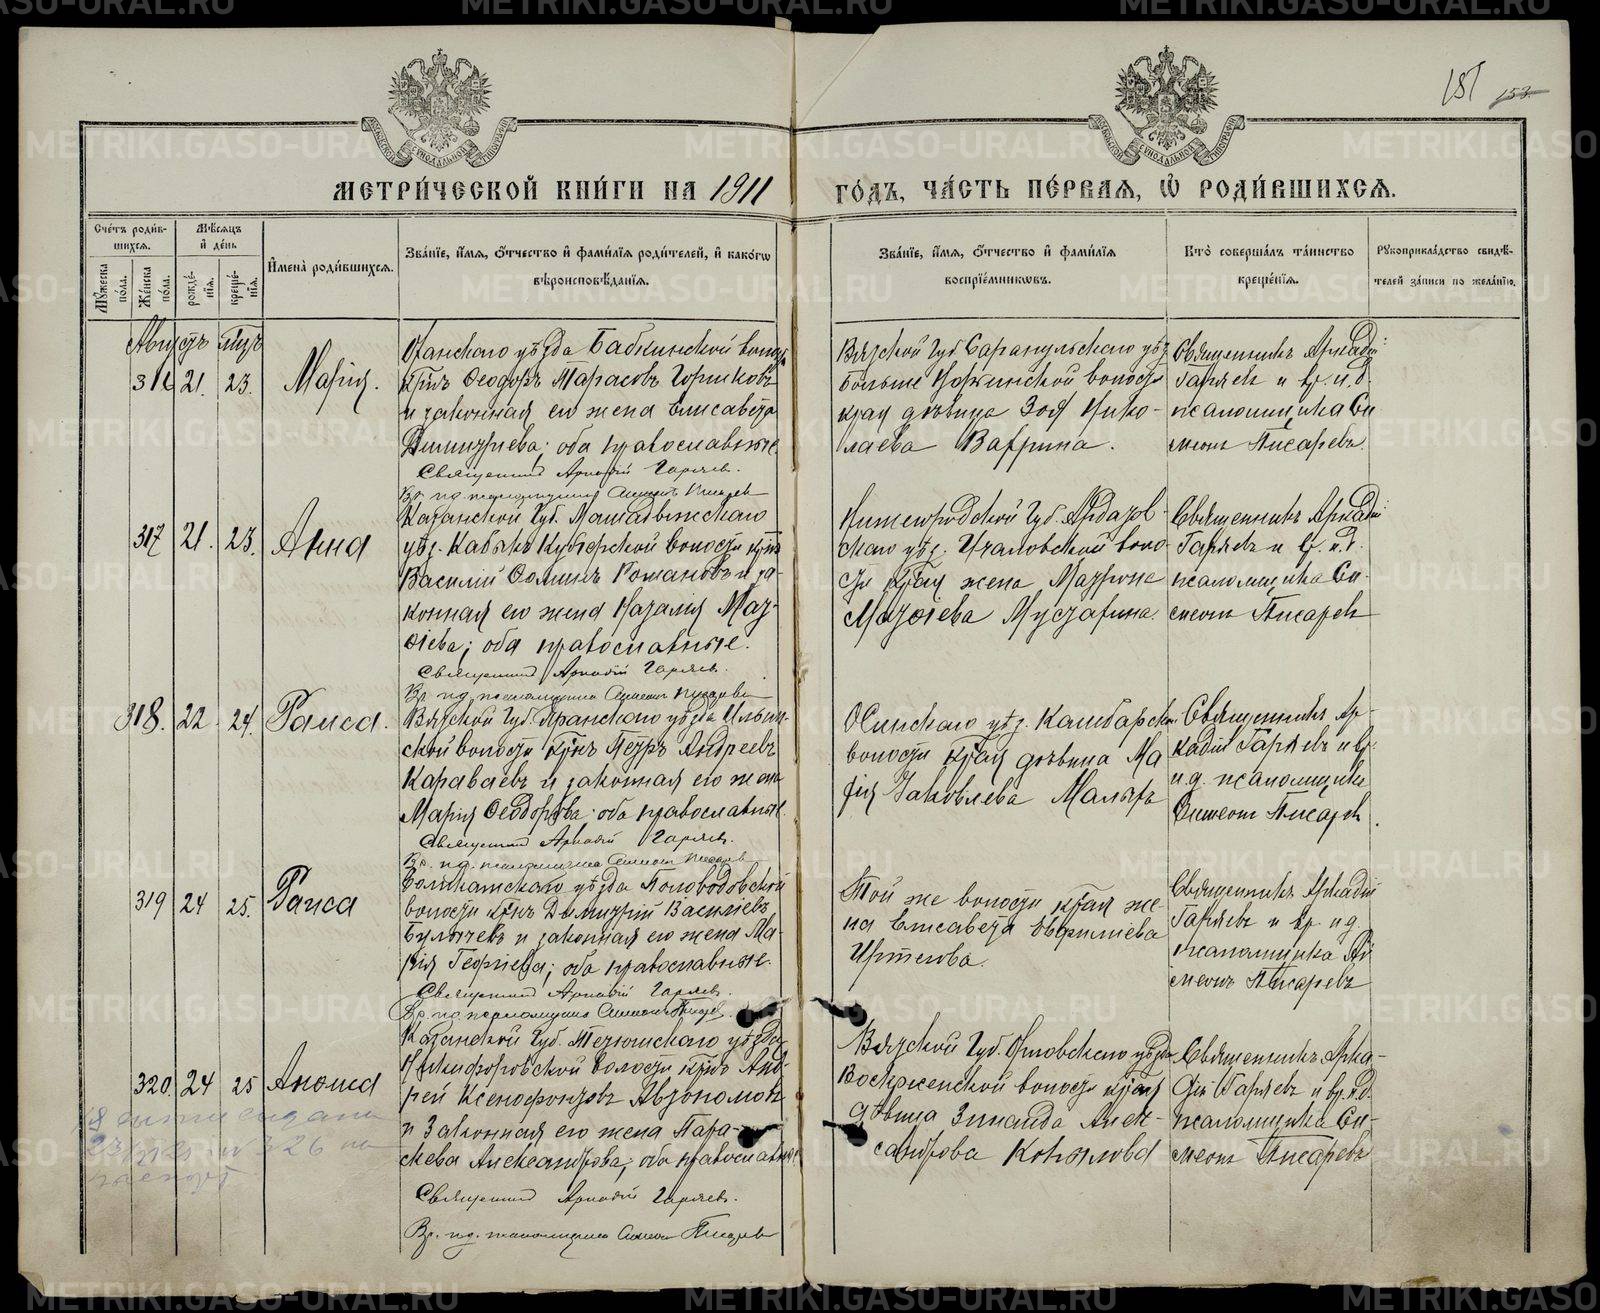 151 153.
МЕТРИ́ЧЕСКОЙ КНИ́ГИ НА 1911
ГО́ДЪ, ЧА́СТЬ ПЕ́РВАЯ, Ѡ҆ РОДИ́ВШИХСѦ.
Сче́тъ роди́в-
шихсѧ.
Мꙋ́жеска по́ла.
Же́нска по́ла.
Мѣ́сѧцъ
и҆ де́нь
рожде́-
нїѧ.
креще́-
нїѧ.
И҆мена̀ роди́вшихсѧ.
Зва́нїе, и҆́мѧ, ѻ҆́тчество и҆ фамѝлїѧ роди́телей, и҆ како́гѡ
вѣроисповѣ́данїѧ.
Зва́нїе, и҆́мѧ, ѻ҆́тчество и҆ фамѝлїѧ
воспрїе́мникѡвъ.
Кто̀ соверша́лъ та́инство
креще́нїѧ.
Рꙋкоприкла́дство свидѣ́-
телей за́писи по жела́нїю.
Августъ
316 21. 23. Марія.
Оханскаго уѣзда Бабкинской волости
кр-нъ Ѳеодоръ Тарасовъ Горшковъ
и законная его жена Елисавета
Димитріева; оба православные
Священникъ Аркадій Гаряевъ.
Вр. и.д. псаломщика Симеонъ Писаревъ
Вятской Губ. Сарапульскаго уѣз.
волости
кр-ая дѣвица Зоя Нико-
лаева Вахрина.
Священникъ Аркадій
Гаряевъ и вр. и.д.
псаломщика Си
меонъ Писаревъ.
317 21. 23. Анна
Казанской Губ. Мамадышскаго
уѣз. Кабыкъ Куперской волости кр-нъ
Василій Ѳоминъ Романовъ и за-
конная его жена Наталія Мат-
ѳіева; оба православные.
Священникъ Аркадій Гаряевъ.
Вр. и.д. псаломщика Симеонъ Писаревъ
Нижегородской Губ. Ардатов-
скаго уѣз. Ичаловской воло-
сти кр-ая жена Матрона
Матѳіева Мустафина.
Священникъ Аркадій
Гаряевъ и вр. и.д.
псаломщика Си-
меонъ Писаревъ
318. 22 24. Раиса.
Вятской Губ. Яранскаго уѣзда Ильин-
ской волости кр-нъ Петръ Андреевъ
Караваевъ и законная его жена
Марія Ѳеодорова; оба православные.
Священникъ Аркадій Гаряевъ.
Вр. и.д. псаломщика Симеонъ Писаревъ
Осинскаго уѣз. Камбарской
волости кр-ая дѣвица Ма
рія Іаковлева Малыхъ
Священникъ Ар-
кадій Гаряевъ и вр.
и.д. псаломщика
Симеонъ Писаревъ.
319 24 25. Раиса
Соликамскаго уѣзда Половодовской
волости кр-нъ Димитрій Василіевъ
Булычевъ и законная его жена Ма-
рія Георгіева; оба православные.
Священникъ Аркадій Гаряевъ.
Вр. и.д. псаломщика Симеонъ Писаревъ.
Той же волости кр-ая же
на Елисавета
Иртегова.
Священникъ Аркадій
Гаряевъ и вр. и.д
псаломщика Си
меонъ Писаревъ
320. 24 25 Анфиса
Казанской Губ. Тетюшскаго уѣзда
Никифоровской волости кр-нъ Анд-
рей Ксенофонтовъ Автономовъ
и законная его жена Пара-
скева Александрова; оба православные
Священникъ Аркадій Гаряевъ.
Вр. и.д. псаломщика Симеонъ Писаревъ
Вятской Губ. Орловскаго уѣзда
Воскресенской волости кр-ая
дѣвица Зинаида Алек-
сандрова Копылова
Священникъ Арка-
дій Гаряевъ и вр. и.д.
псаломщика Си-
меонъ Писаревъ